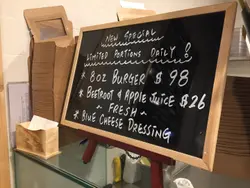 NEW SPECIAL
LIMITED PORTIONS DAILY!
* 8oz BURGER $98
* BEETROOT & APPLE JUICE $26
- FRESH -
* BLUE CHEESE DRESSING